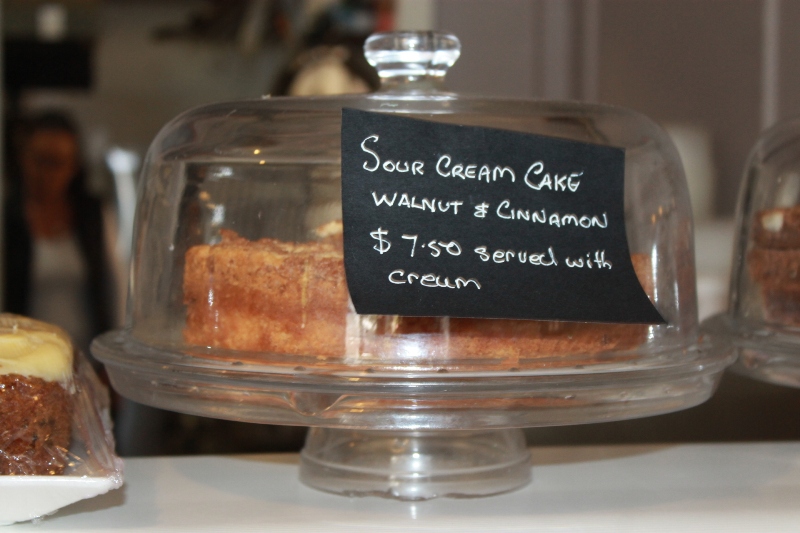 SOUR CREAM CAKE
WALNUT & CINNAMON
$ 7.50 served with
cream